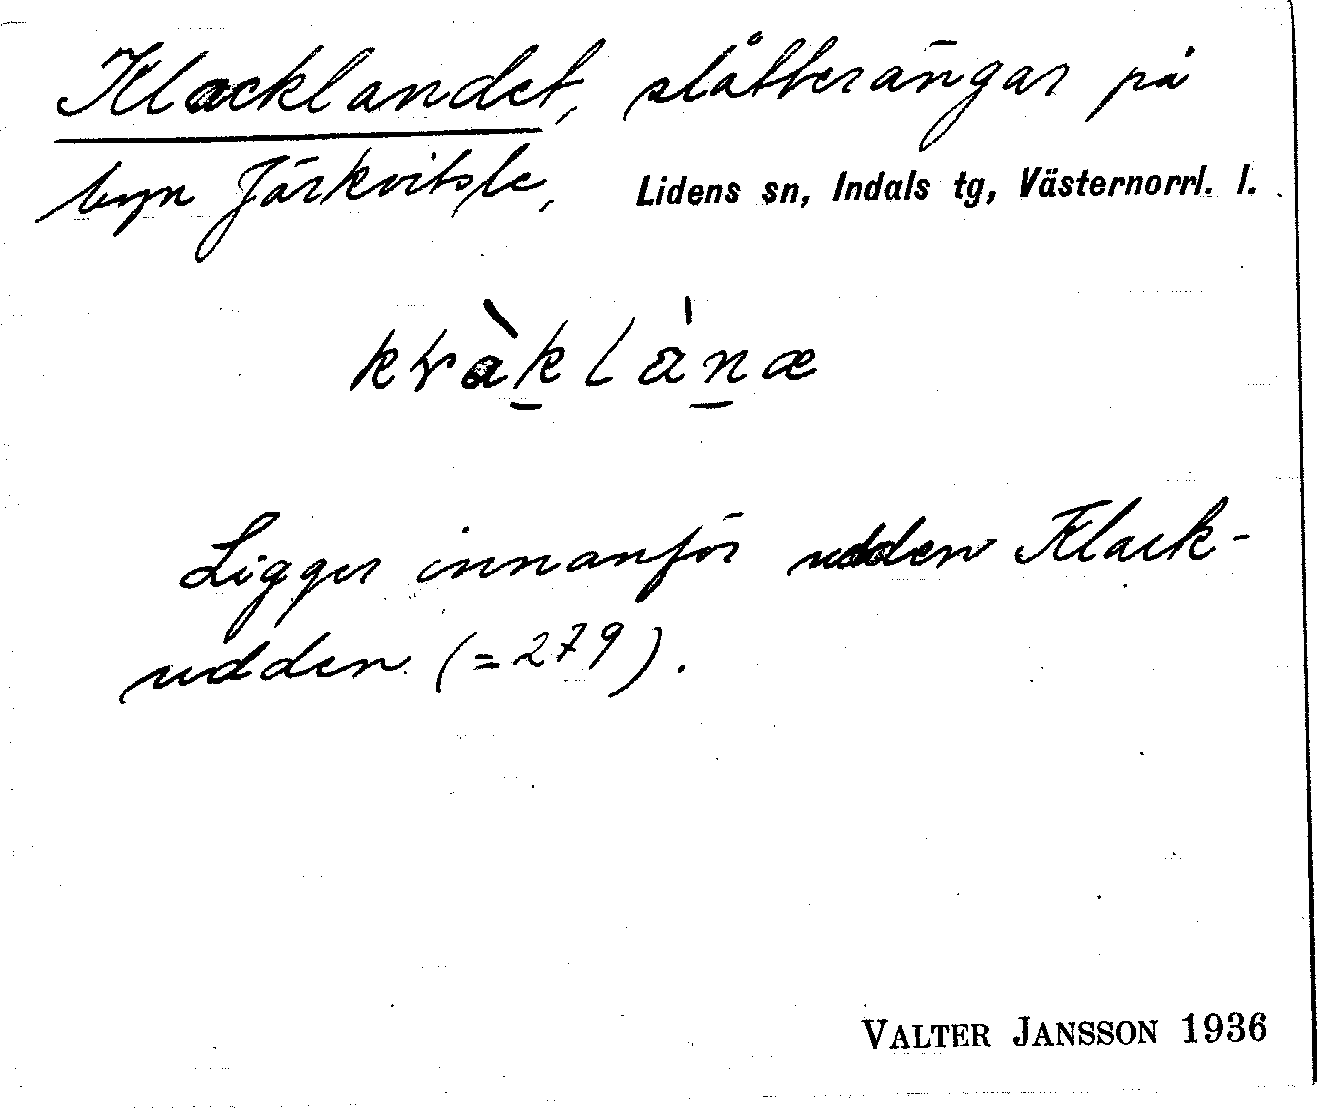 Klacklandet, slåtterängar på
byn Järkvitsle, Lidens sn, Indals tg, Västernorrl. l.
Ligger innanför udden Klack-
udden (=279).
VALTER JANSSON 1936